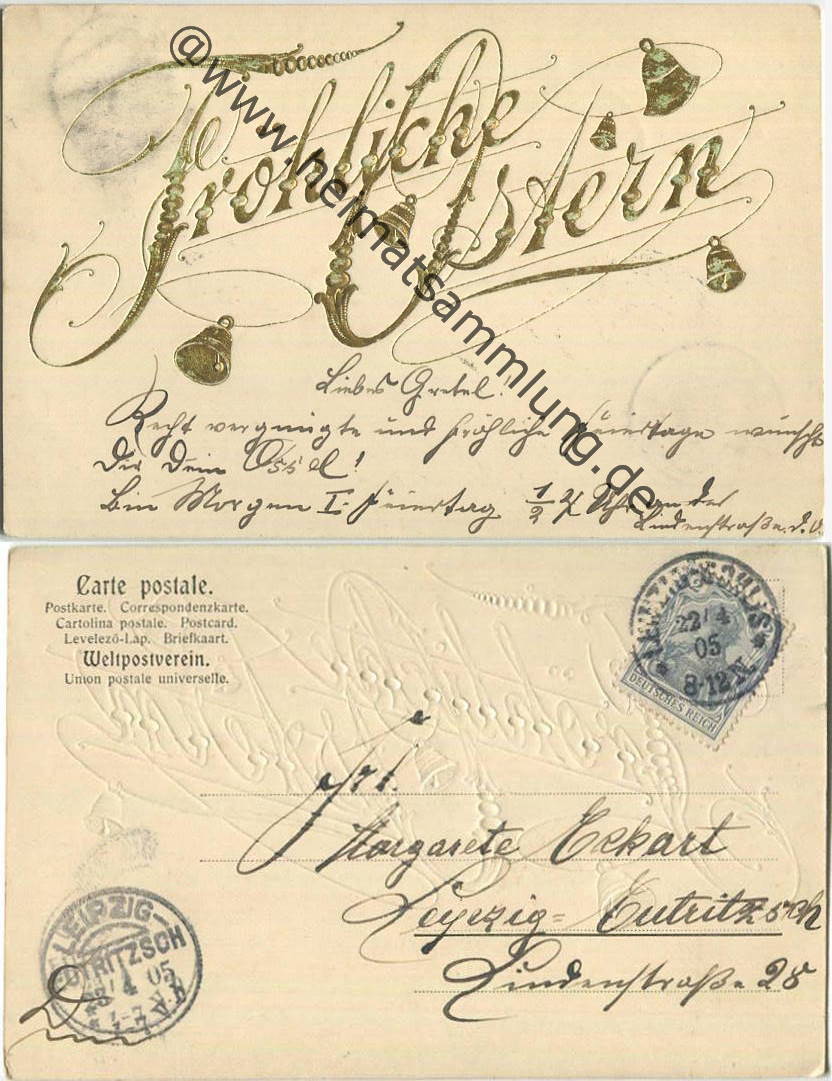 Fröhliche
Ostern
@www.heimatsammlung.de
Liebes Gretel!
Recht vergnügte und fröhliche Feiertage wünscht
Dir Dein Ossel!
Bin Morgen I. Feiertag 1/2 Uhr an der
Lindenstraße
Carte postale.
Postkarte. Correspondenzkarte.
Cartolina postale. Postcard.
Levelező-Lap. Briefkaart.
Weltpostverein.
Union postale universelle.
22/4
05
8-12 N.
DEUTSCHES REICH
Frl.
Margarete Eckart
Leipzig-Eutritzsch
Lindenstraße 28
LEIPZIG-
EUTRITZSCH
4 05